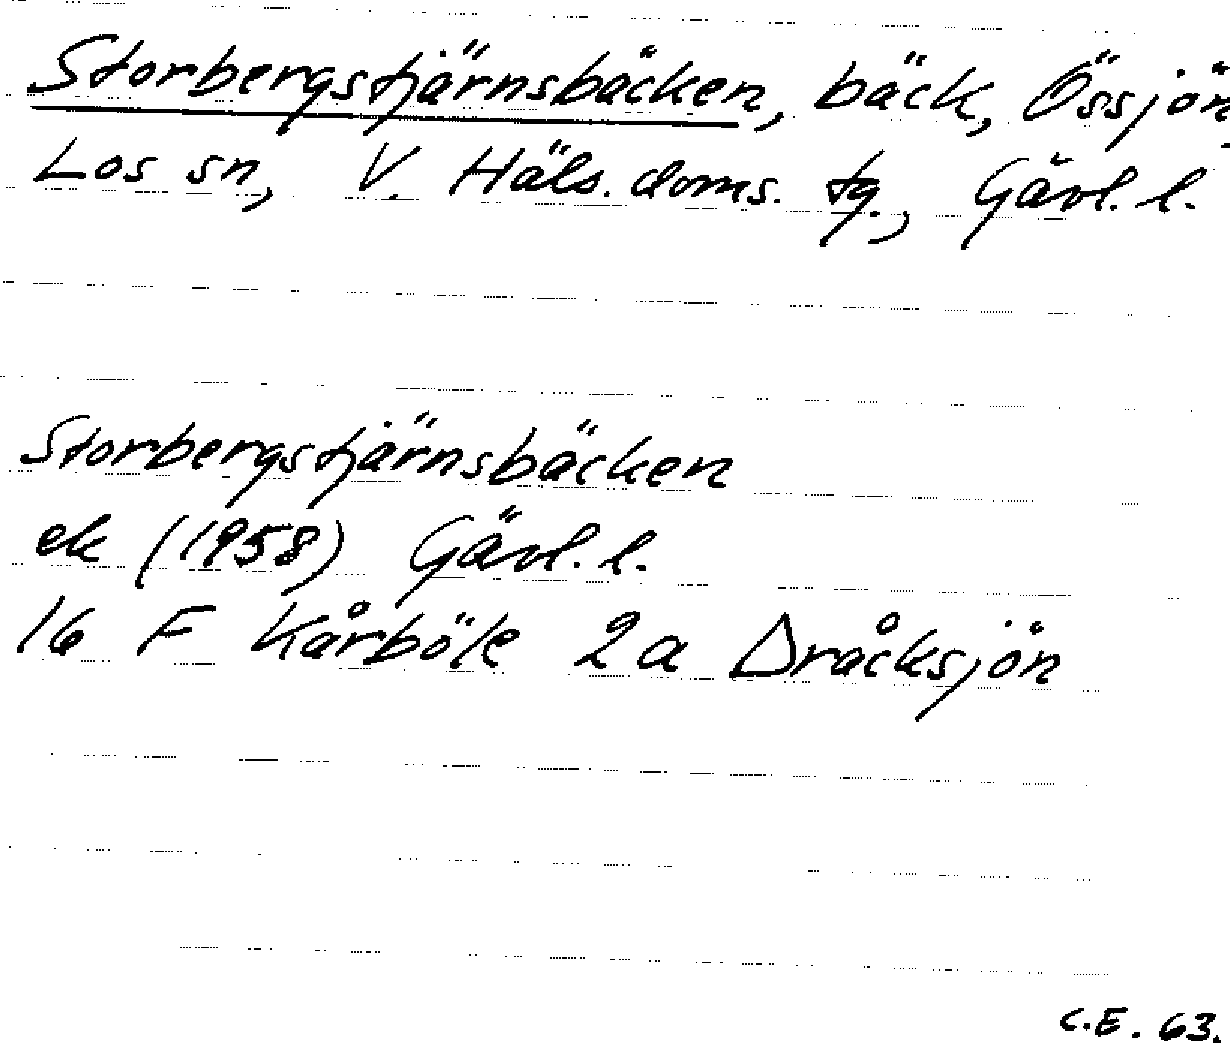 Storbergstjärnsbäcken, bäck, Össjön,
Los sn, V. Häls. doms. tg., Gävl. l.
Storbergstjärnsbäcken
ek (1958) Gävl. l.
16 F Kårböle 2a Dråcksjön
C.E. 63.